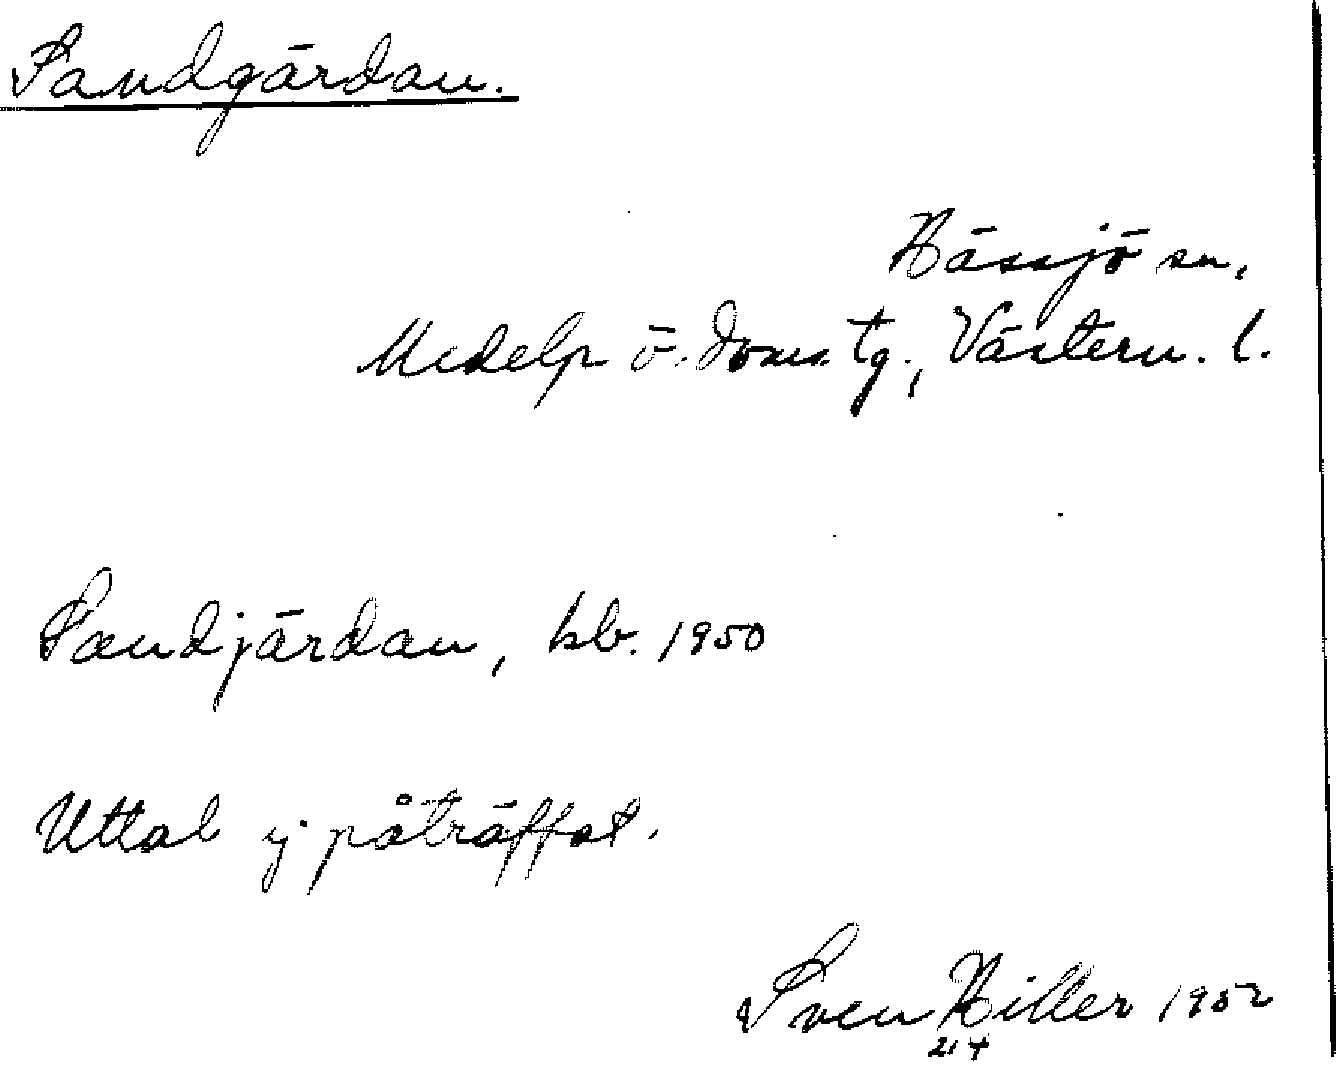 Sandgärdan.
Hässjö sn,
Medelp ö. doms. tg., Västern. l.
Sandjärdan, kb. 1950
Uttal ej påträffat.
Sven Hiller 1952